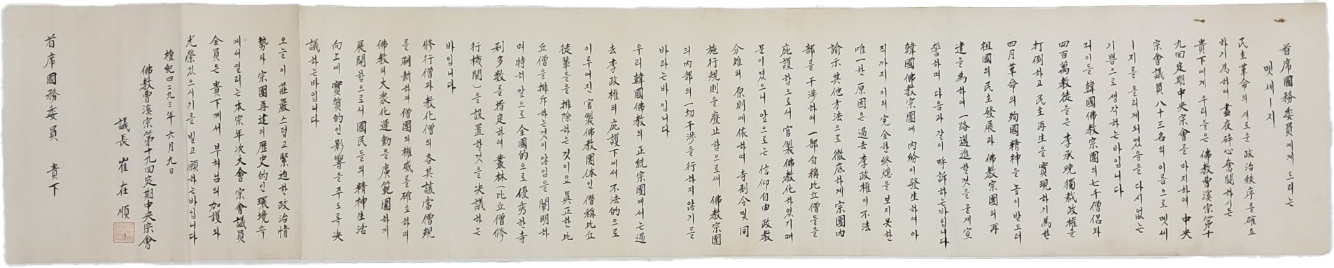 首席國務委員에게 드리는
멧세ー지
民主革命의 새로운 政治秩序를 確立
하기 爲하여 晝夜碎心奮鬪하시는
貴下에게 우리들은 佛敎曹溪宗第十
九回定期中央宗會를 마지하여 中央
宗會議員 八十三名의 이름으로 멧세
ー지를 올리게되였음을 다시없는
기쁨으로 생각하는바입니다
저이들 韓國佛敎宗團의 七千僧侶와
四百萬敎徒들은 李承晩獨裁政權을
打倒하고 民主再生을 實現하기爲한
四月革命의 殉國精神을 높이받드러
祖國의 民主發展과 佛敎宗團의 再
建을 爲하여 一路邁進할것을 굳게 宣
誓하며 다음과 같이 呼訴하는바입니다
韓國佛敎宗團에 內紛이 發生하여 아
직까지 이의 完全한 終熄을 보지못한
唯一한 原因은 過去 李政權이 不法
諭示 其他 方法으로 徹底하게 宗團內
部를 干涉하여 一部 自稱比丘僧들을
庇護함으로서 官製佛敎化하였기때
문이었으니 앞으로는 信仰自由 政敎
分離의 原則에 依하여 寺刹令및 同
施行規則을 廢止함으로써 佛敎宗團
의 內部의 一切 干涉을 行하지 않기를
바라는바입니다
우리 韓國佛敎의 正統宗團에서는 過
去 李政權의 庇護下에서 不法的으로
이루어진 官製佛敎團體인 僭稱比丘
徒輩를 排除하는것이요 眞正한 比
丘僧을 排斥하는것이 않임을 闡明하
며 特히 앞으로 全國的으로 優秀한 寺
刹 多數를 指定하여 叢林(比丘僧修
行機關)을 設置할것을 決議하는
바입니다
修行僧과 敎化僧의 各其 該當僧規
를 刷新하여 僧團의 權威를 確立하며
佛敎의 大衆化運動을 廣範圍하게
展開함으로서 國民들의 精神生活
向上에 實質的인 影響을 주도록 決
議하는바입니다
오늘 이 莊嚴스럽고 緊迫한 政治情
勢와 宗團再建의 歷史的인 環境속
에서 열리는 本宗 年次大會 宗會議員
全員은 貴下께서 부처님의 加護와
光榮있으시기를 빌고 願하는바입니다
檀紀四二九三年 六月九日
佛敎曹溪宗第十九回定期中央宗會
議長 崔在順
首席國務委員 貴下